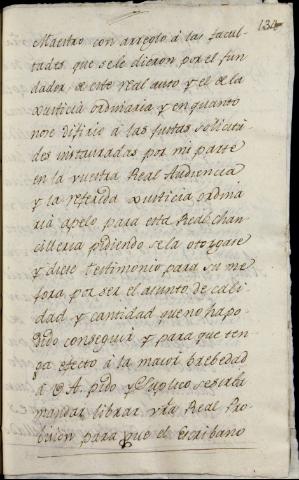 134
Maestro con arreglo â las facul-
tades que se le dieron por el fun
dador, de este real auto y el de la
Justicia ordinaria y en quanto
no se difirio â las Justas solicitu-
des instauradas por mi parte
en la vuestra Real Audiencia
y la referida Justicia ordina
ria apelo para esta Real chan
cilleria pidiendo se la otorgase
y diese testimonio para su me
jora, por ser el asunto de cali
dad y cantidad que no ha po-
dido conseguir y para que ten
ga efecto â la maior brebedad
â V. A. pido y Suplico se sirba
mandar librar vra. Real Pro
bision para que el Escribano